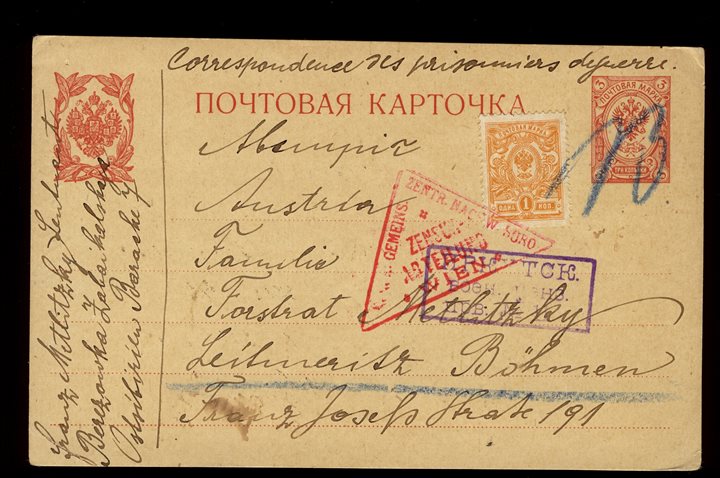 Correspondence des prisonniers deguerre.
ПОЧТОВАЯ КАРТОЧКА
3 ПОЧТОВАЯ МАРКА 3
3 ТРИ КОПЕЙКИ 3
ПОЧТОВАЯ МАРКА
ОДНА 1 КОП.
Австрія
Austria
Familie
Forstrat Metlitzky
Leitmeritz Böhmen
Franz Josefs Strate 191
GEMEINS. ZENTR. NACHW. BURO
ZENSUR
ABTEILUNG
WIEN
ИРКУТСК.
ВОЕН. ЦЕНЗ.
Franz Metlitzky Leutnant
Berezowka Zabaikalskaja
Ostsibirien Baracke 7